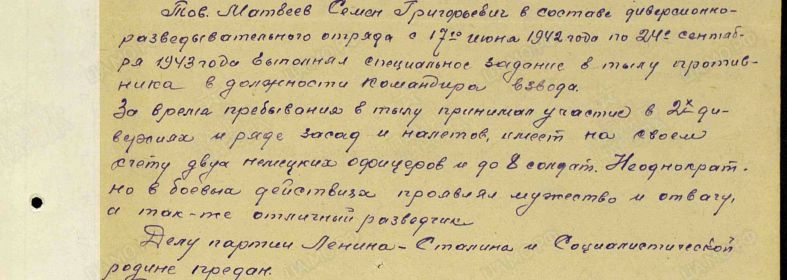 Тов. Матвеев Семен Григорьевич в составе диверсионно-
разведывательного отряда с 17го июня 1942 года по 24е сентяб-
ря 1943 года выполнял специальное задание в тылу против-
ника в должности командира взвода.
За время пребывания в тылу принимал участие в 2х ди-
верзиях и ряде засад и налетов, имеет на своем
счету двух немецких офицеров и до 8 солдат. Неоднократ-
но в боевых действиях проявлял мужество и отвагу,
а так-же отличный разведчик
Делу партии Ленина-Сталина и Социалистической
родине предан.